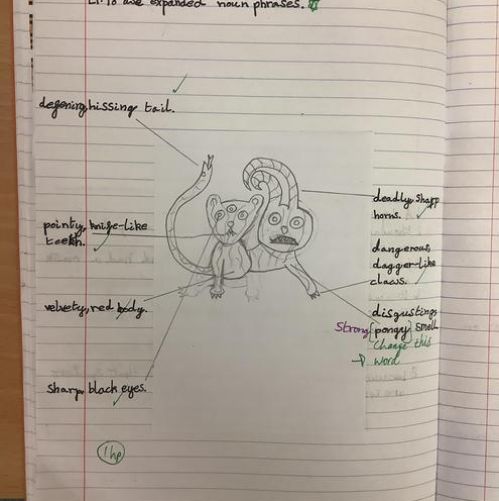 LI: To use expanded noun phrases.
defening, hissing tail.
deadly, sharp
horns.
pointy, knife-like
teeth.
dangerous,
dagger-like
claws.
velvety, red body.
disgusting,
Strong [pongy] smell
Change this
→ word
sharp, black eyes.
1hp